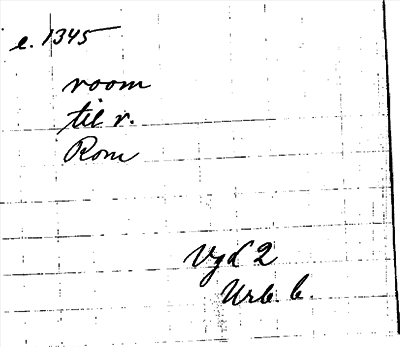 c. 1345
room
til r.
Rom
Vgd 2
Urb. b.